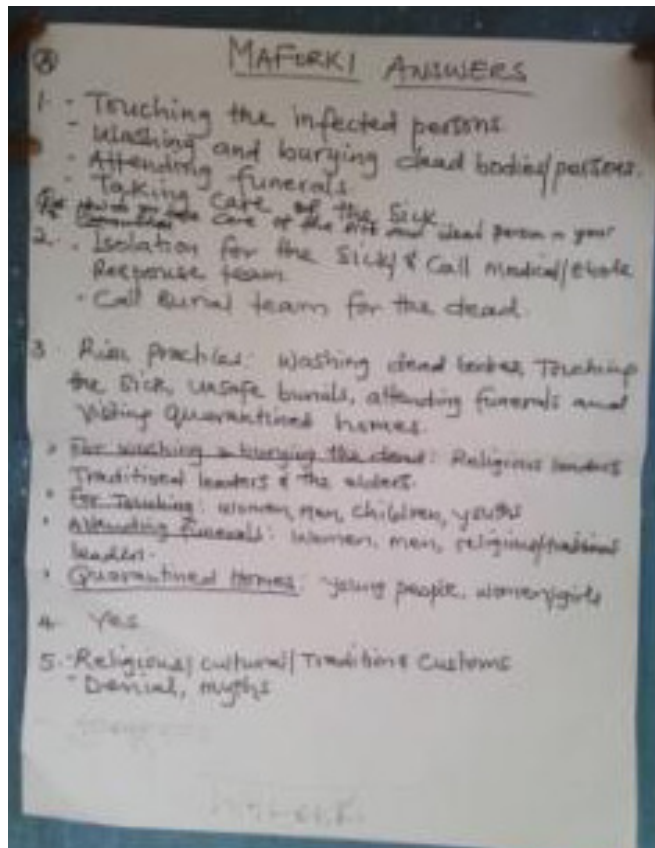 MAFORKI ANSWERS
1. - Touching the infected persons.
- Washing and burying dead bodies/persons.
- Attending funerals.
- Taking care of the sick
care of the sick and dead person in your
2. . Isolation for the sick/& Call medical/Ebola
Response team
. Call Burial team for the dead.
3. Risk Practices: Washing dead bodies, Touching
the sick, unsafe burials, attending funerals and
visiting Quarantined homes.
. For washing & burying the dead: Religious leaders
Traditional leaders & the elders.
. For Touching: women, men, children, youths
. Attending Funerals: women, men, religious/traditional
leaders.
. Quarantined Homes: young people, women/girls
4. Yes
5. - Religious/cultural/Traditions Customs
- Denial, myths